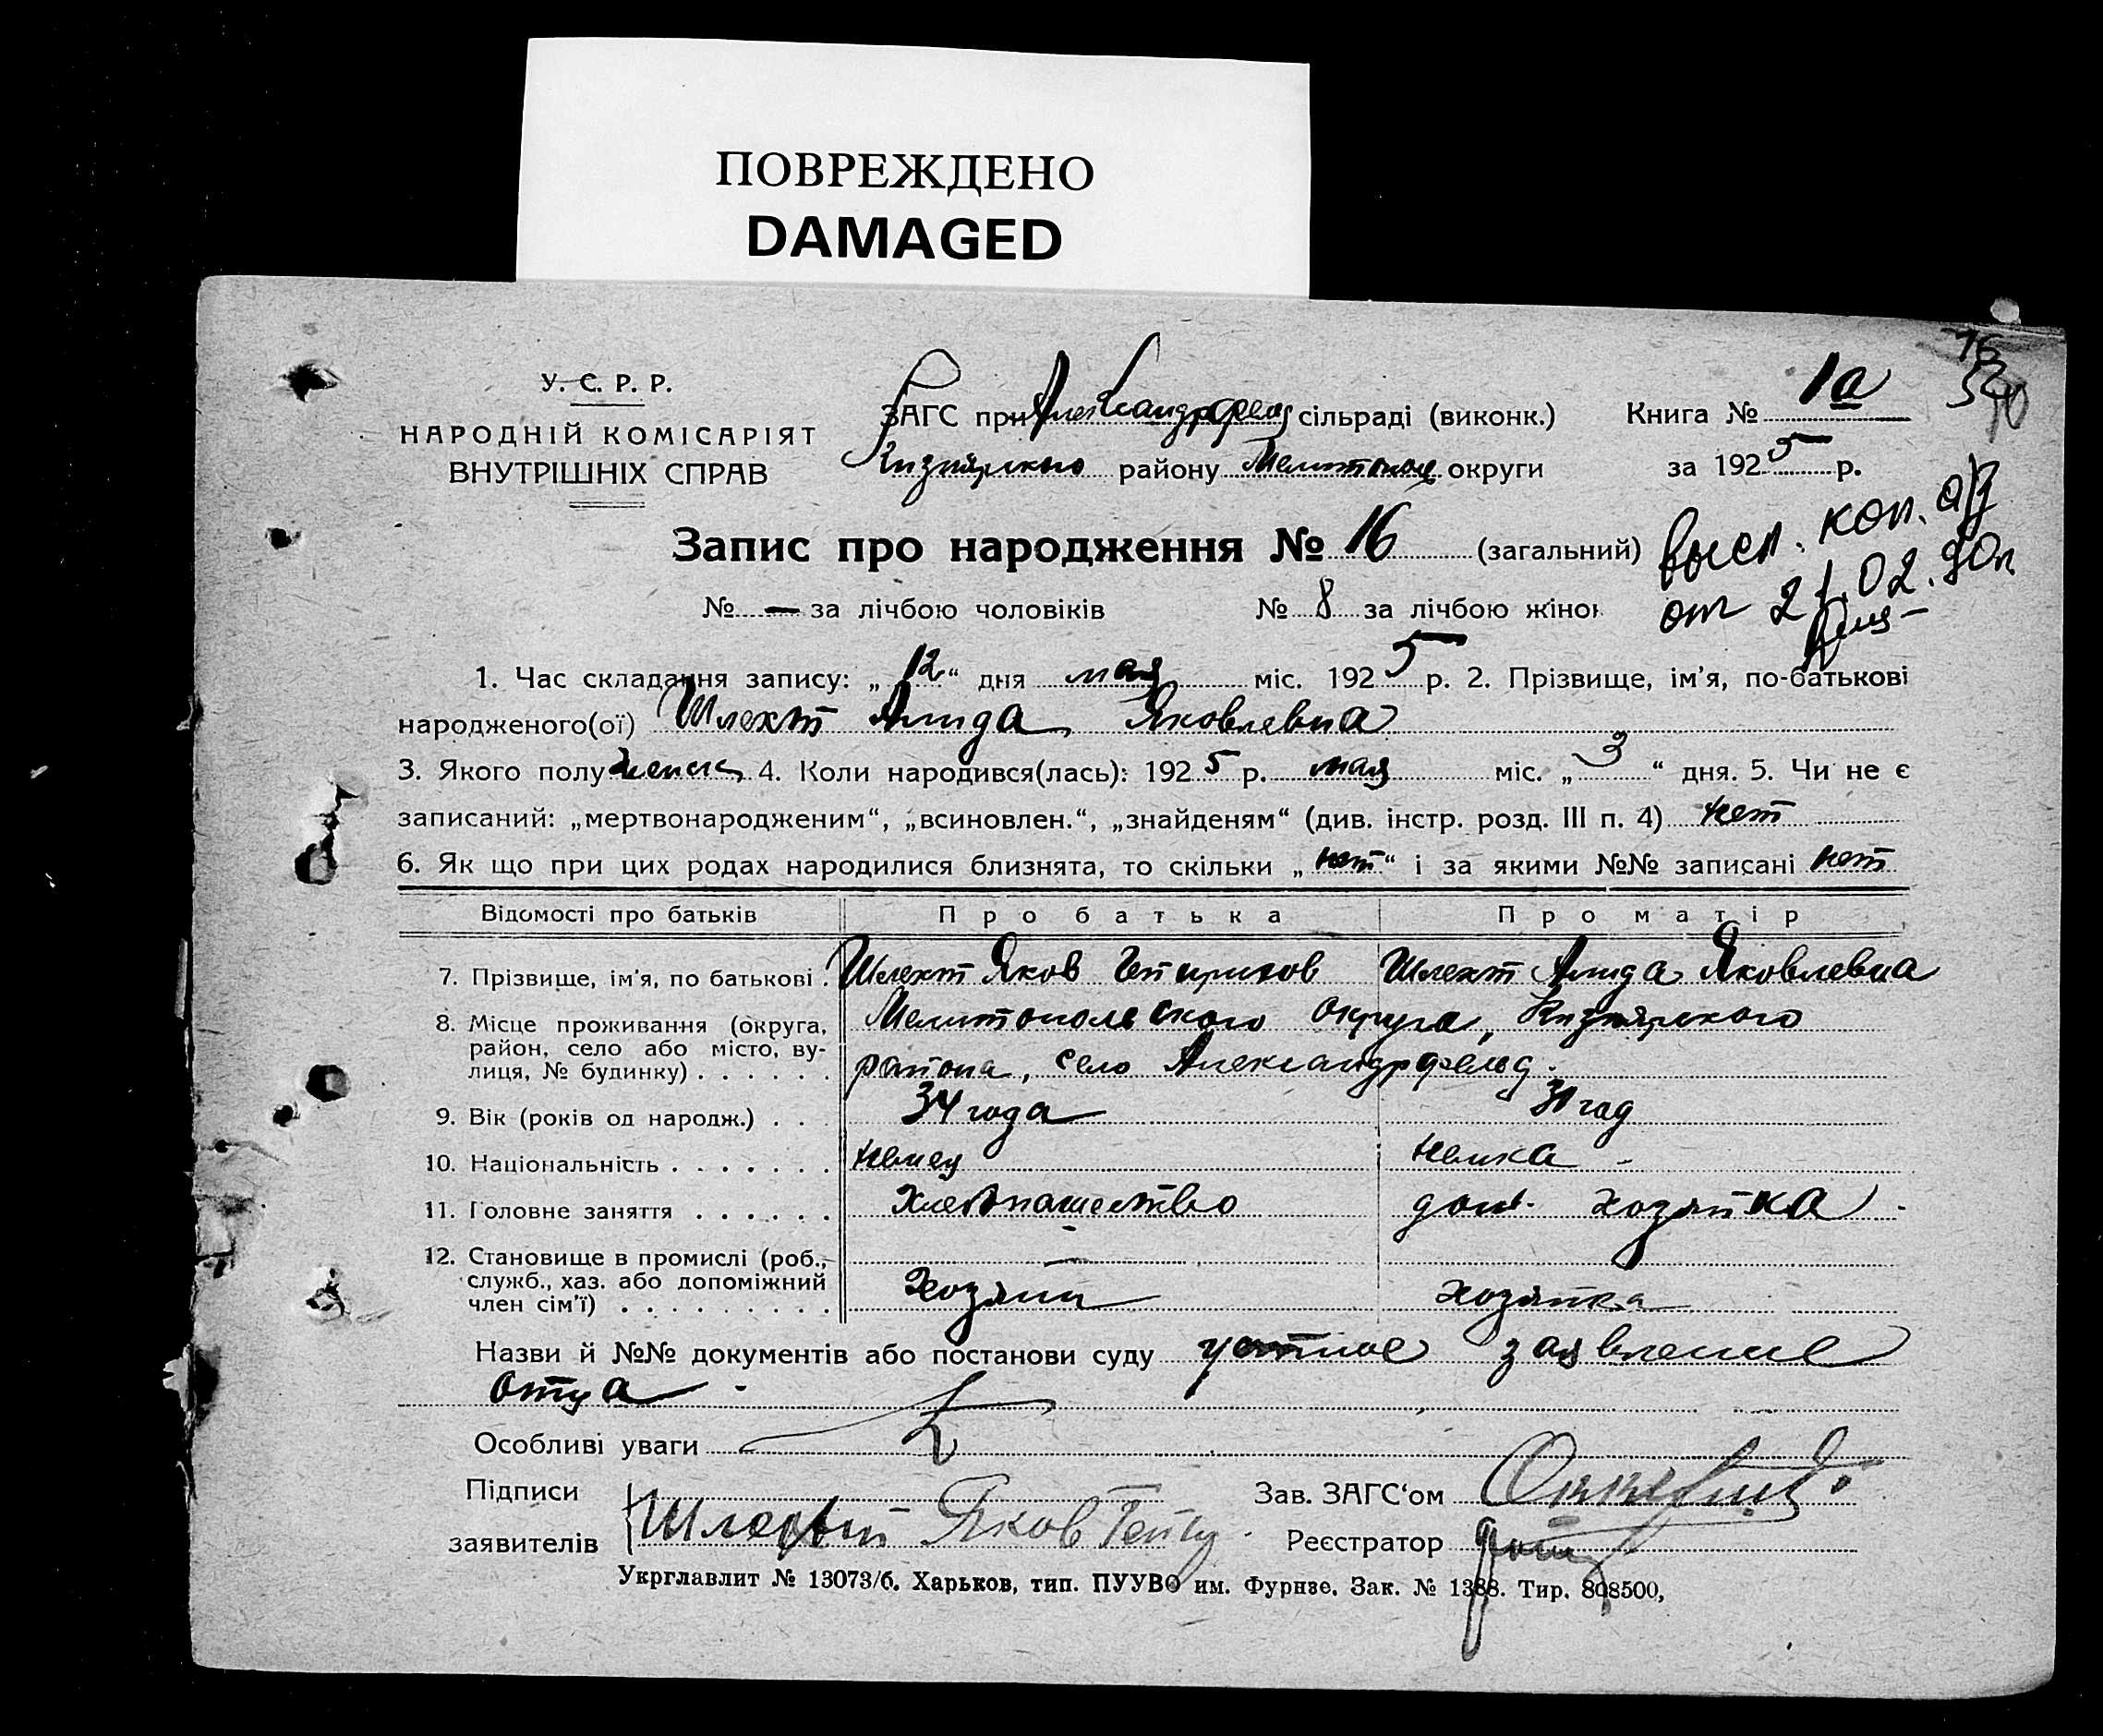 ПОВРЕЖДЕНО
DAMAGED
У. С. Р. Р.
НАРОДНІЙ КОМІСАРІЯТ
ВНУТРІШНІХ СПРАВ
ЗАГС при Александрфельд сільраді (виконк.)
Кизиярского району Мелитополь округи
Книга № 1а
за 1925 р.
Запис про народження № 16 (загальний)
№ — за лічбою чоловіків № 8 за лічбою жінок
высл. коп. а/з
от 21.02.90г.
1. Час складання запису: „12“ дня мая міс. 1925 р. 2. Прізвище, ім'я, по-батькові
народженого(ої) Шлехт Алида Яковлевна
3. Якого полу женск 4. Коли народився(лась): 1925 р. мая міс. „3“ дня. 5. Чи не є
записаний: „мертвонародженим“, „всиновлен.“, „знайденям“ (див. інстр. розд. III п. 4) нет
6. Як що при цих родах народилися близнята, то скільки „нет“ і за якими №№ записані нет
Відомості про батьків Про батька Про матір
7. Прізвище, ім'я, по батькові . Шлехт Яков Шлехт Алида Яковлевна
8. Місце проживання (округа, Мелитопольского округа, Кизиярского
район, село або місто, ву-
лиця, № будинку) . . . . . . района, село Александрфельд.
9. Вік (років од народж.) . . . 34 года 31 год
10. Національність . . . . . . . немец немка
11. Головне заняття . . . . . . Хлебопашество дом. хозяйка
12. Становище в промислі (роб.,
служб., хаз. або допоміжний
член сім'ї) . . . . . . . . . Хозяин хозяйка
Назви й №№ документів або постанови суду устное заявление
отца
Особливі уваги
Підписи
заявителів Шлехт Яков
Зав. ЗАГС'ом
Реєстратор
Укрглавлит № 13073/б. Харьков, тип. ПУУВО им. Фурнзе. Зак. № 1388. Тир. 808500,